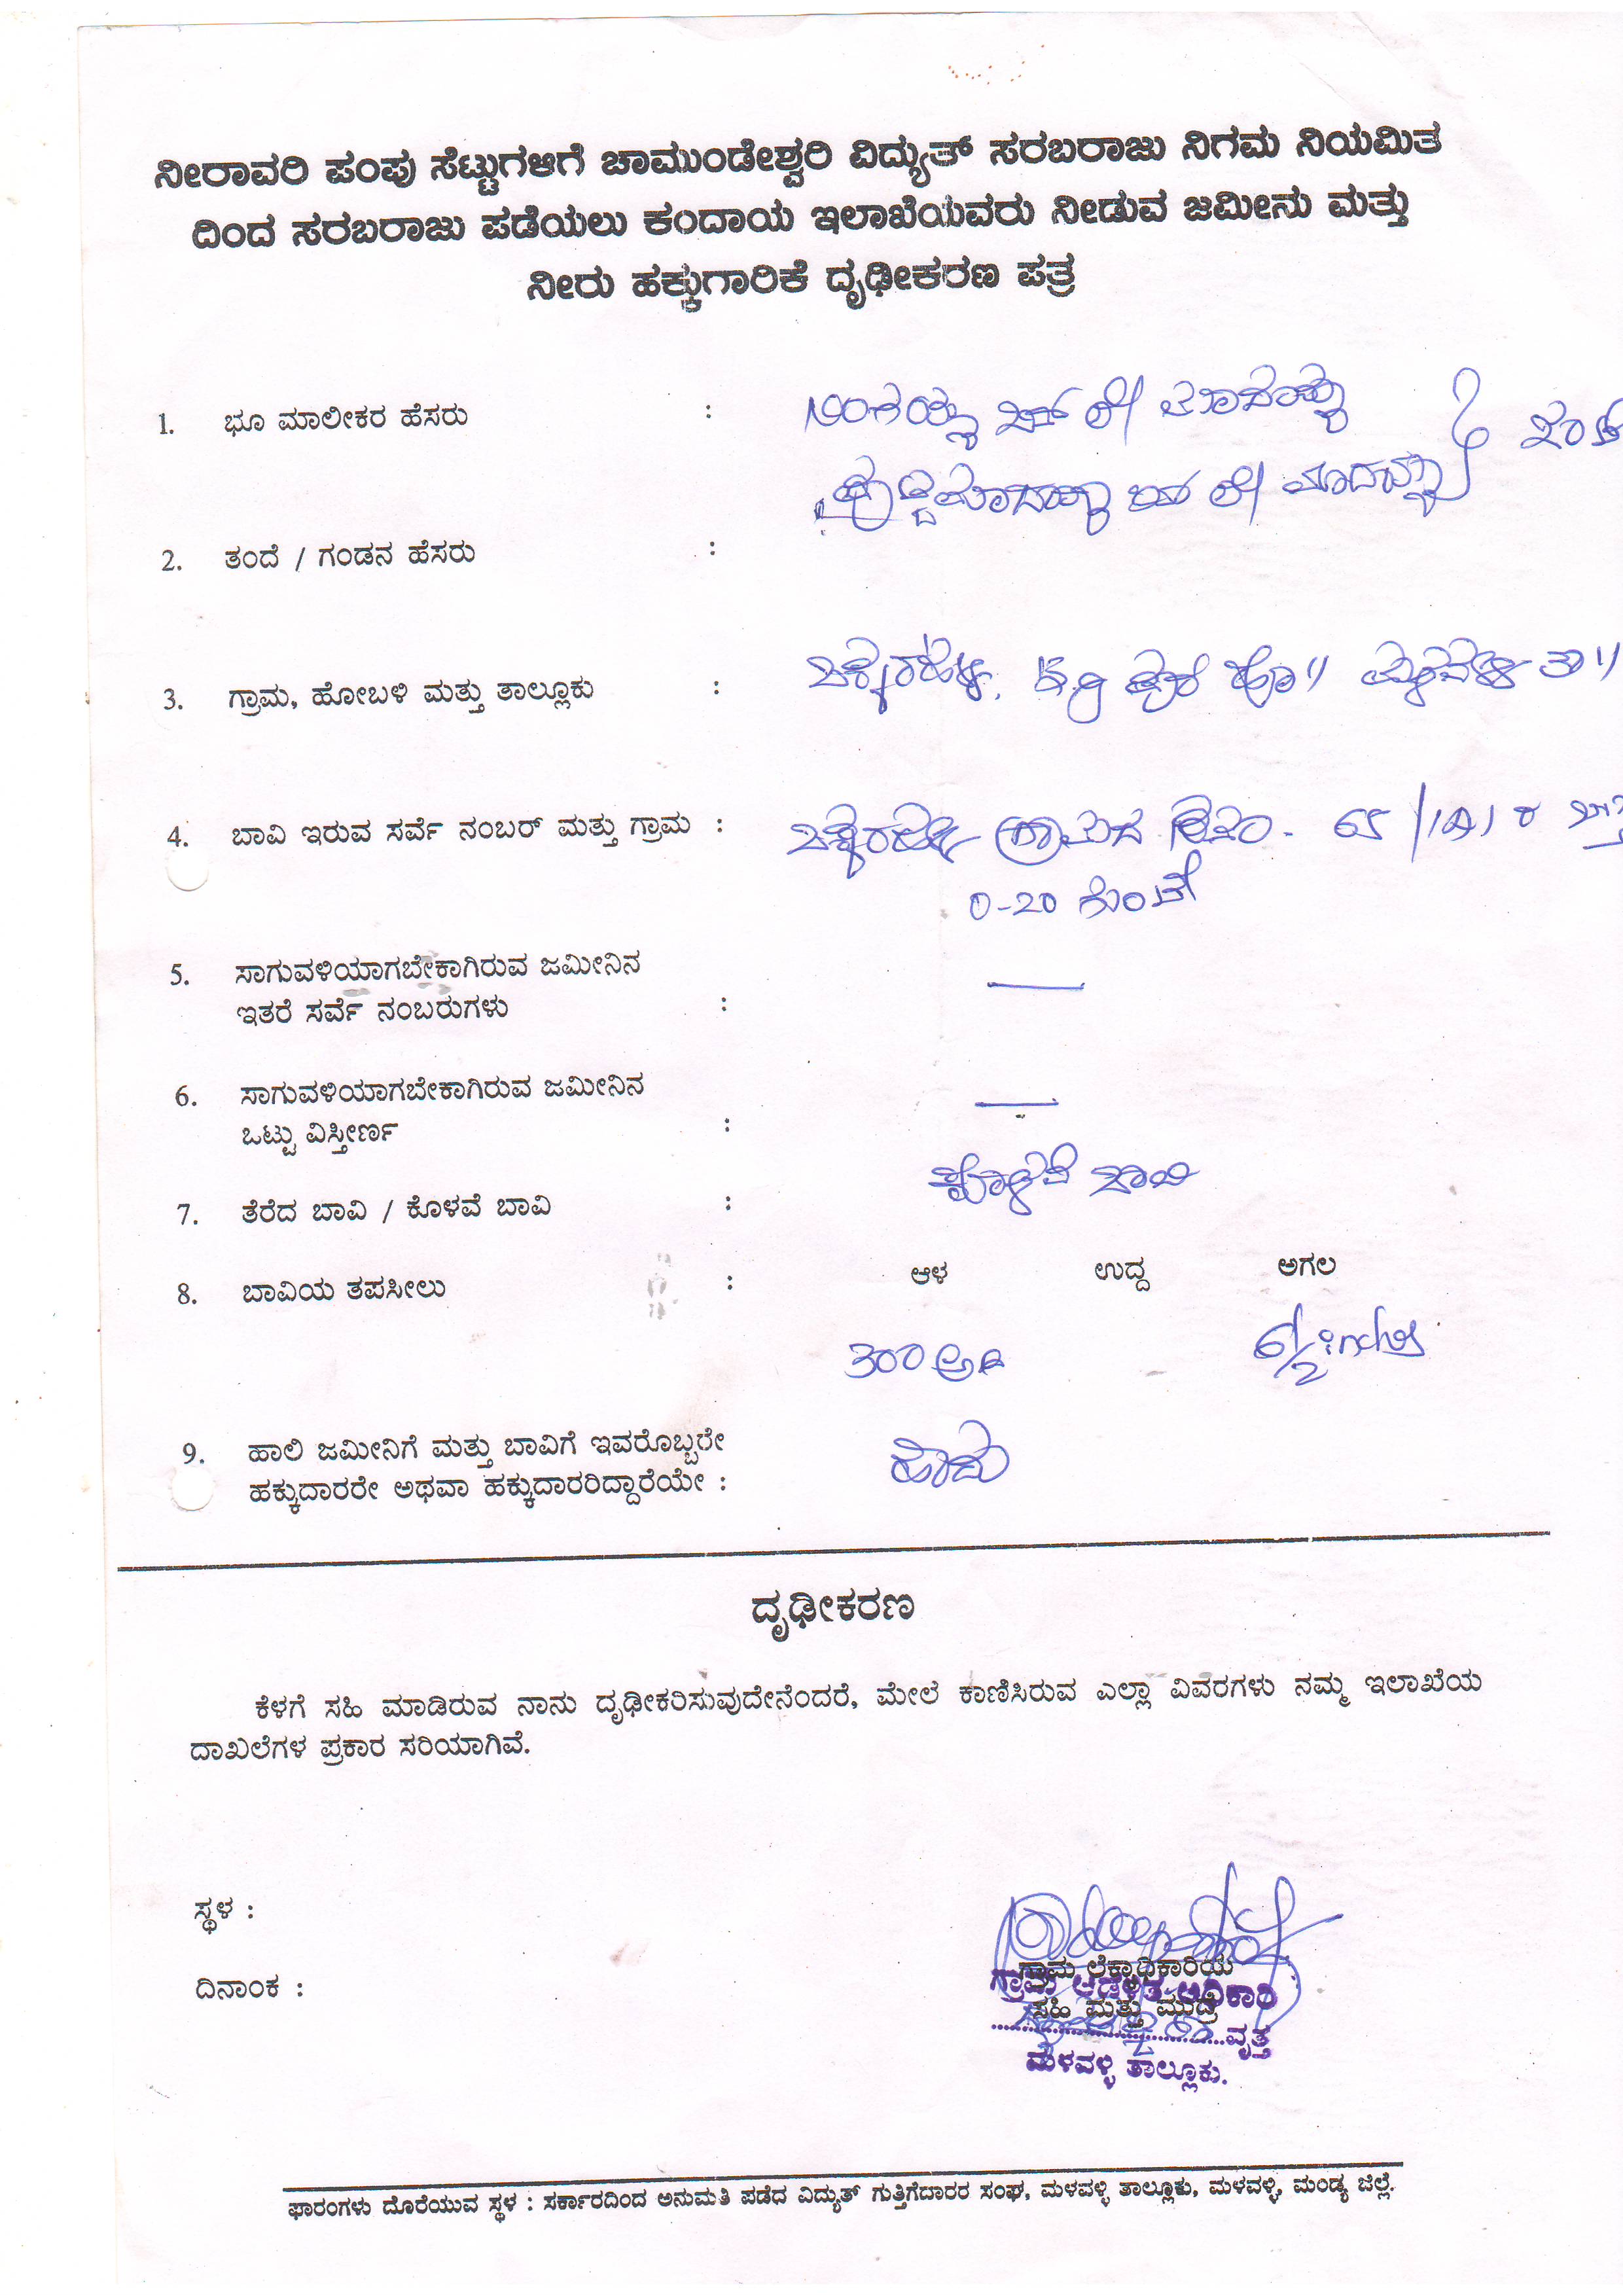 ನೀರಾವರಿ ಪಂಪು ಸೆಟ್ಟುಗಳಿಗೆ ಚಾಮುಂಡೇಶ್ವರಿ ವಿದ್ಯುತ್ ಸರಬರಾಜು ನಿಗಮ ನಿಯಮಿತ
ದಿಂದ ಸರಬರಾಜು ಪಡೆಯಲು ಕಂದಾಯ ಇಲಾಖೆಯವರು ನೀಡುವ ಜಮೀನು ಮತ್ತು
ನೀರು ಹಕ್ಕುಗಾರಿಕೆ ದೃಢೀಕರಣ ಪತ್ರ
1. ಭೂ ಮಾಲೀಕರ ಹೆಸರು :
2. ತಂದೆ / ಗಂಡನ ಹೆಸರು :
3. ಗ್ರಾಮ, ಹೋಬಳಿ ಮತ್ತು ತಾಲ್ಲೂಕು : ಹೋ॥ ಮಳವಳ್ಳಿ ತಾ॥
4. ಬಾವಿ ಇರುವ ಸರ್ವೆ ನಂಬರ್ ಮತ್ತು ಗ್ರಾಮ : ಗ್ರಾಮದ ಸ.ನಂ. 65
0-20 ಗುಂಟೆ
5. ಸಾಗುವಳಿಯಾಗಬೇಕಾಗಿರುವ ಜಮೀನಿನ
ಇತರೆ ಸರ್ವೆ ನಂಬರುಗಳು : —
6. ಸಾಗುವಳಿಯಾಗಬೇಕಾಗಿರುವ ಜಮೀನಿನ
ಒಟ್ಟು ವಿಸ್ತೀರ್ಣ : —
7. ತೆರೆದ ಬಾವಿ / ಕೊಳವೆ ಬಾವಿ : ಕೊಳವೆ ಬಾವಿ
8. ಬಾವಿಯ ತಪಸೀಲು : ಆಳ ಉದ್ದ ಅಗಲ
300 ಅಡಿ 6 1/2 inches
9. ಹಾಲಿ ಜಮೀನಿಗೆ ಮತ್ತು ಬಾವಿಗೆ ಇವರೊಬ್ಬರೇ
ಹಕ್ಕುದಾರರೇ ಅಥವಾ ಹಕ್ಕುದಾರರಿದ್ದಾರೆಯೇ : ಹೌದು
ದೃಢೀಕರಣ
ಕೆಳಗೆ ಸಹಿ ಮಾಡಿರುವ ನಾನು ದೃಢೀಕರಿಸುವುದೇನೆಂದರೆ, ಮೇಲೆ ಕಾಣಿಸಿರುವ ಎಲ್ಲಾ ವಿವರಗಳು ನಮ್ಮ ಇಲಾಖೆಯ
ದಾಖಲೆಗಳ ಪ್ರಕಾರ ಸರಿಯಾಗಿವೆ.
ಸ್ಥಳ :
ಗ್ರಾಮ ಲೆಕ್ಕಾಧಿಕಾರಿಯ
ಗ್ರಾಮ ಆಡಳಿತ ಅಧಿಕಾರಿ
ದಿನಾಂಕ :
ಸಹಿ ಮತ್ತು ಮುದ್ರೆ
ವೃತ್ತ
ಮಳವಳ್ಳಿ ತಾಲ್ಲೂಕು.
ಫಾರಂಗಳು ದೊರೆಯುವ ಸ್ಥಳ : ಸರ್ಕಾರದಿಂದ ಅನುಮತಿ ಪಡೆದ ವಿದ್ಯುತ್ ಗುತ್ತಿಗೆದಾರರ ಸಂಘ, ಮಳವಳ್ಳಿ ತಾಲ್ಲೂಕು, ಮಳವಳ್ಳಿ, ಮಂಡ್ಯ ಜಿಲ್ಲೆ.